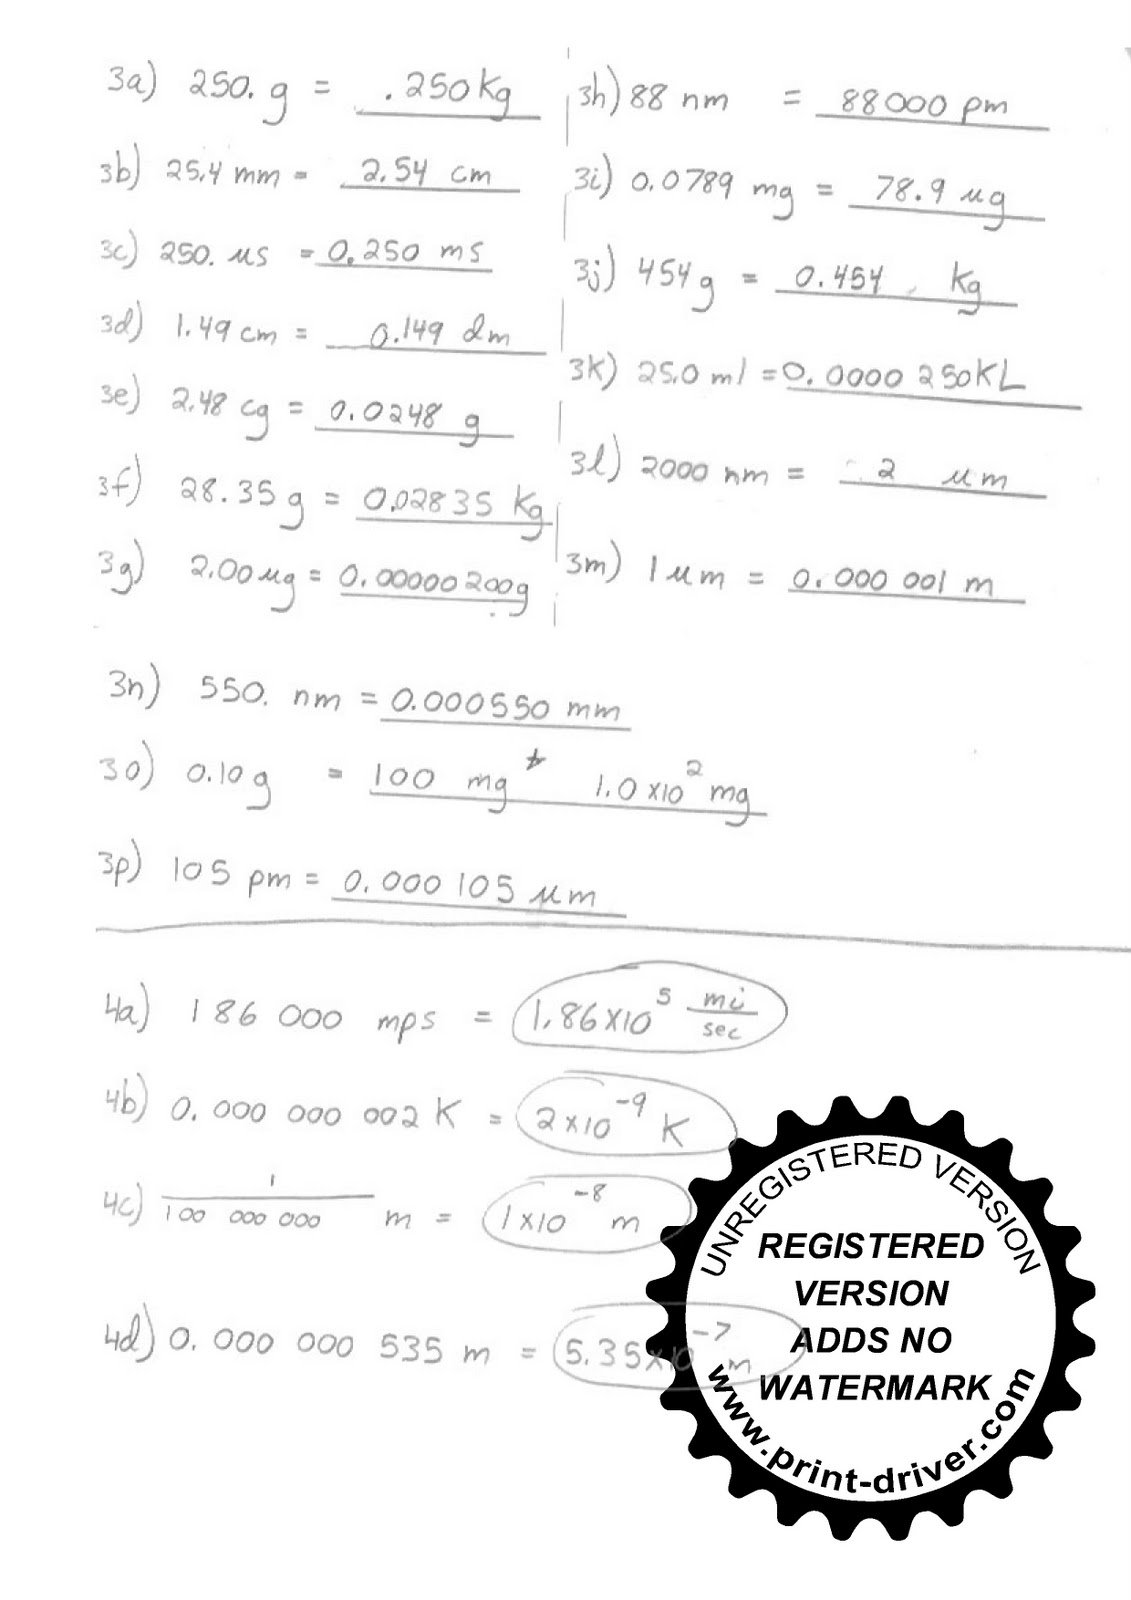 3a) 250. g = .250 Kg
3b) 25.4 mm = 2.54 cm
3c) 250. μs = 0.250 ms
3d) 1.49 cm = 0.149 dm
3e) 2.48 cg = 0.0248 g
3f) 28.35 g = 0.02835 Kg
3g) 2.00 μg = 0.00000200g
3h) 88 nm = 88000 pm
3i) 0.0789 mg = 78.9 μg
3j) 454 g = 0.454 Kg
3k) 25.0 ml = 0.0000 250KL
3l) 2000 nm = 2 μm
3m) 1 μm = 0.000 001 m
3n) 550. nm = 0.000550 mm
3o) 0.10 g = 100 mg * 1.0 x10² mg
3p) 105 pm = 0.000 105 μm
4a) 186 000 mps = 1.86 x10⁵ mi/sec
4b) 0.000 000 002 K = 2 x10⁻⁹ K
4c) 1/100 000 000 m = 1 x10⁻⁸ m
4d) 0.000 000 535 m = 5.35 x10⁻⁷ m
UNREGISTERED VERSION
REGISTERED
VERSION
ADDS NO
WATERMARK
www.print-driver.com